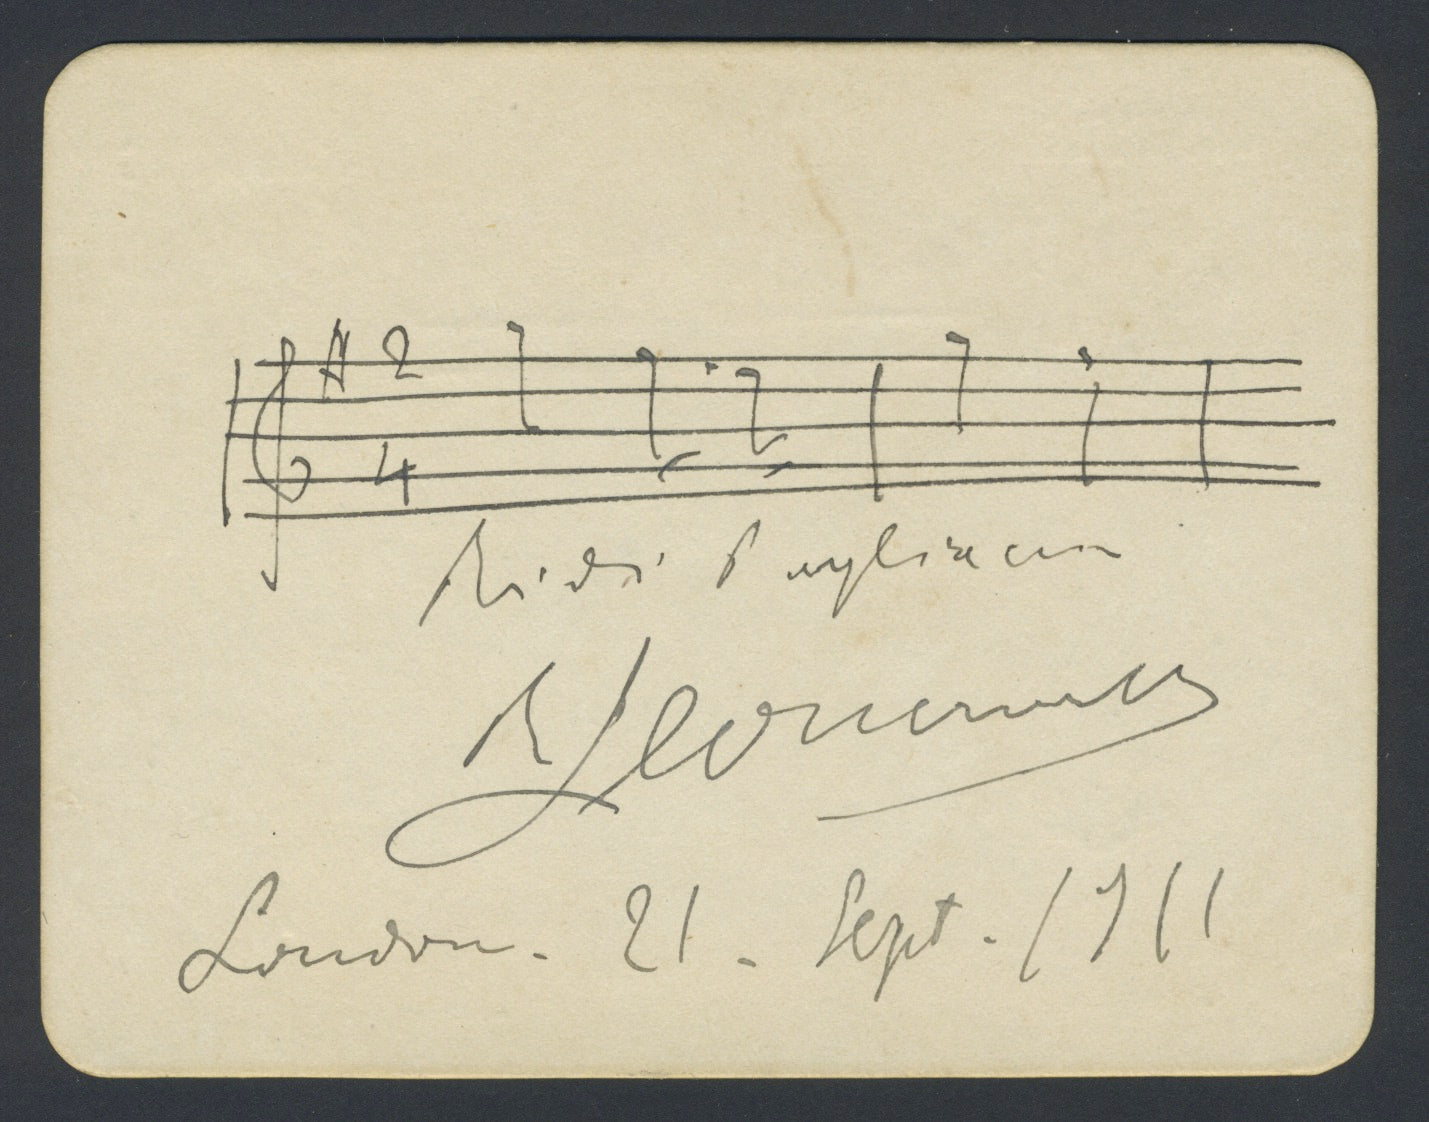 2
4
Ridi Pagliaccio
R Leoncavallo
London. 21. Sept. 1911